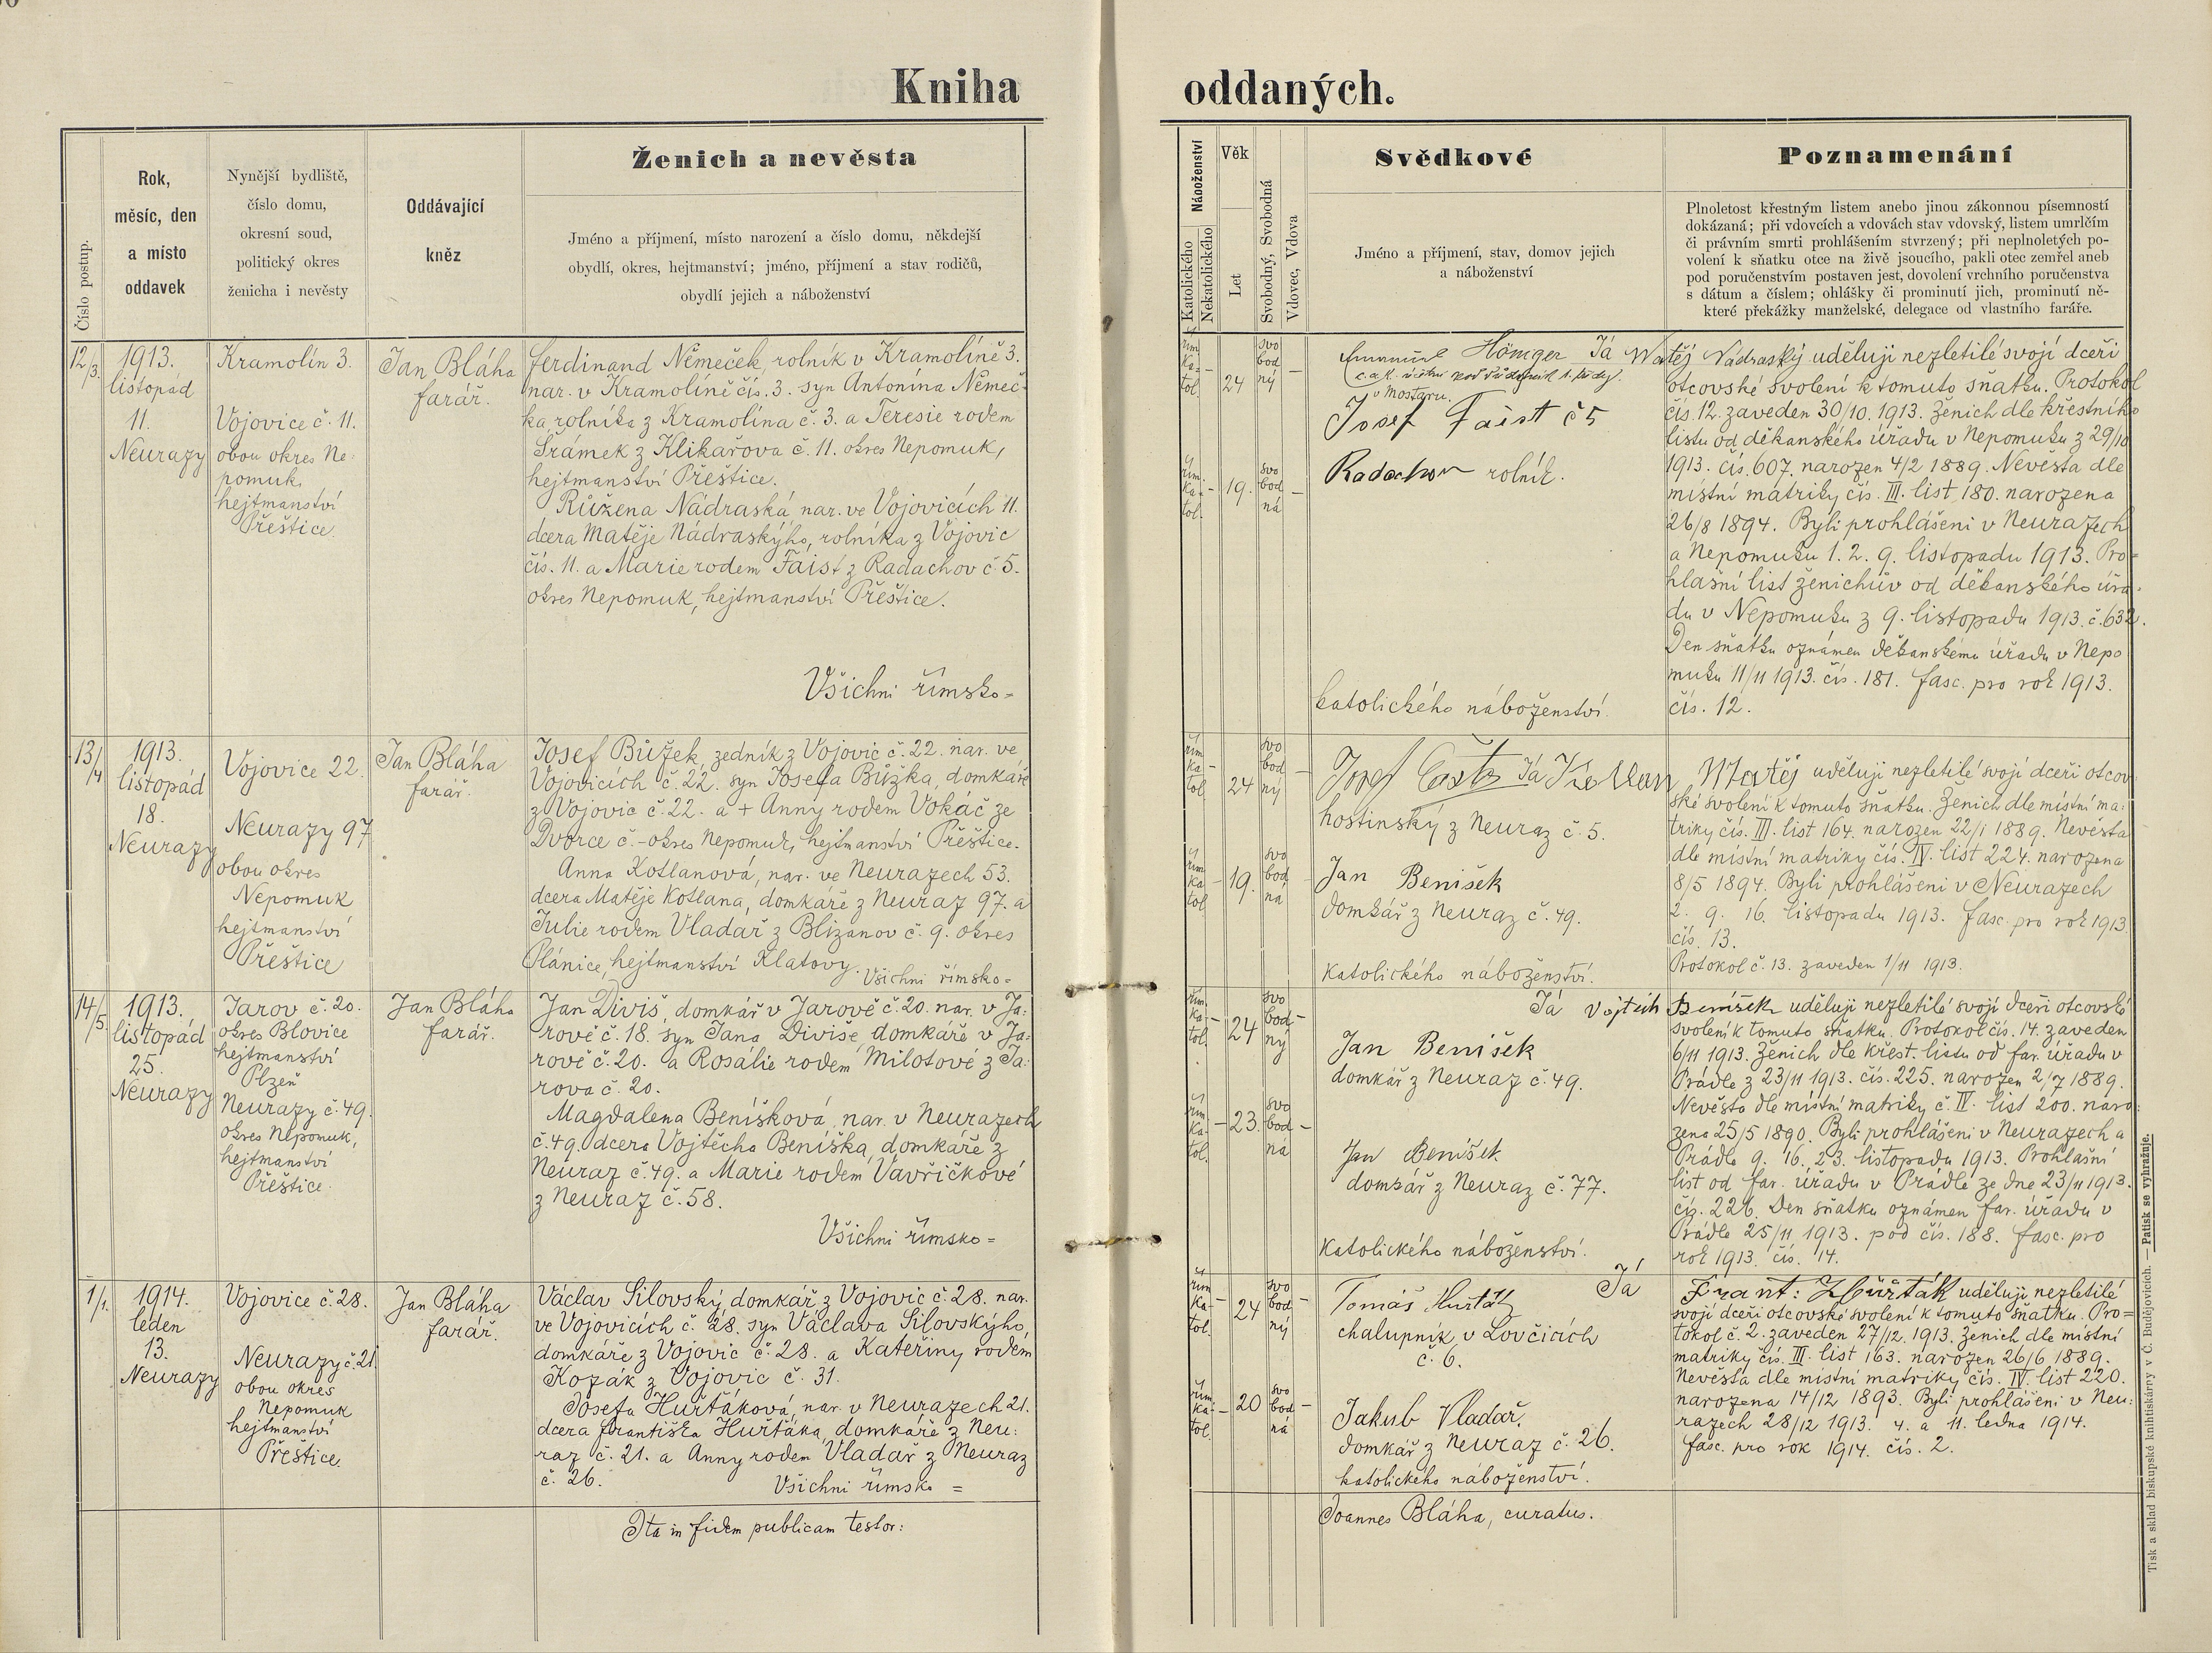 Kniha
oddaných.
Číslo postup.
Rok,
měsíc, den
a místo
oddavek
Nynější bydliště,
číslo domu,
okresní soud,
politický okres
ženicha i nevěsty
Oddávající
kněz
Ženich a nevěsta
Jméno a příjmení, místo narození a číslo domu, někdejší
obydlí, okres, hejtmanství; jméno, příjmení a stav rodičů,
obydlí jejich a náboženství
Náboženství
Katolického
Nekatolického
Věk
Let
Svobodný, Svobodná
Vdovec, Vdova
Svědkové
Jméno a příjmení, stav, domov jejich
a náboženství
Poznamenání
Plnoletost křestným listem anebo jinou zákonnou písemností
dokázaná; při vdovcích a vdovách stav vdovský, listem umrlčím
či právním smrti prohlášením stvrzený; při neplnoletých po-
volení k sňatku otce na živě jsoucího, pakli otec zemřel aneb
pod poručenstvím postaven jest, dovolení vrchního poručenstva
s dátum a číslem; ohlášky či prominutí jich, prominutí ně-
které překážky manželské, delegace od vlastního faráře.
12/3.
1913.
listopád
11.
Neurazy
Kramolín 3.
Vojovice č. 11.
obou okres Ne-
pomuk,
hejtmanství
Přeštice.
Jan Bláha
farář.
Ferdinand Němeček, rolník v Kramolíně 3.
nar. v Kramolíně čís. 3. syn Antonína Němeč-
ka, rolníka z Kramolína č. 3. a Teresie rodem
Šrámek z Klikařova č. 11. okres Nepomuk,
hejtmanství Přeštice.
Růžena Nádraská nar. ve Vojovicích 11.
dcera Matěje Nádraskýho, rolníka z Vojovic
čís. 11. a Marie rodem Faist z Radachov č. 5.
okres Nepomuk, hejtmanství Přeštice.
Všichni římsko-
řím.
ka-
tol.
24
svo
bod
ný
řím.
ka-
tol.
19.
svo
bod
ná
Höniger
v Mostaru.
Josef Faist č 5
Radachov rolník.
katolického náboženství.
Já Matěj Nádraský uděluji nezletilé svojí dceři
otcovské svolení k tomuto sňatku. Protokol
čís. 12. zaveden 30/10. 1913. Ženich dle křestního
listu od děkanského úřadu v Nepomuku z 29/10
1913. čís. 607. narozen 4/2 1889. Nevěsta dle
místní matriky čís. III. list 180. narozena
26/8 1894. Byli prohlášeni v Neurazech
a Nepomuku 1. 2. 9. listopadu 1913. Pro-
hlašní list ženichův od děkanského úřa-
du v Nepomuku z 9. listopadu 1913. č. 632.
Den sňatku oznámen děkanskému úřadu v Nepo
muku 11/11 1913. čís. 181. fasc. pro rok 1913.
čís. 12.
13/4
1913.
listopád
18.
Neurazy
Vojovice 22.
Neurazy 97
obou okres
Nepomuk
hejtmanství
Přeštice
Jan Bláha
farář.
Josef Bůžek, zedník z Vojovic č. 22. nar. ve
Vojovicích č. 22. syn Josefa Bůžka, domkáře
z Vojovic č. 22. a + Anny rodem Vokáč ze
Dvorce č. - okres Nepomuk, hejtmanství Přeštice.
Anna Kotlanová, nar. ve Neurazech 53.
dcera Matěje Kotlana, domkáře z Neuraz 97. a
Julie rodem Vladař z Blizanov č. 9. okres
Plánice, hejtmanství Klatovy.
Všichni římsko-
řím
ka-
tol.
24
svo
bod
ný
řím
ka
tol
19.
svo
bod
ná
Josef
hostinský z Neuraz č. 5.
Jan Benišek
domkář z Neuraz č. 49.
katolického náboženství.
Já Kotlan Matěj uděluji nezletilé svojí dceři otcov
ské svolení k tomuto sňatku. Ženich dle místní ma-
triky čís. III. list 164. narozen 22/1 1889. Nevěsta
dle místní matriky čís. IV. list 224. narozena
8/5 1894. Byli prohlášeni v Neurazech
2. 9. 16. listopadu 1913. fasc. pro rok 1913
čís. 13.
Protokol č. 13. zaveden 1/11 1913.
14/5
1913.
listopád
25.
Neurazy
Jarov č. 20.
okres Blovice
hejtmanství
Plzeň
Neurazy č. 49.
okres Nepomuk,
hejtmanství
Přeštice.
Jan Bláha
farář.
Jan Diviš, domkář v Jarově č. 20. nar. v Ja-
rově č. 18. syn Jana Diviše, domkáře v Ja-
rově č. 20. a Rosálie rodem Milotové z Ja-
rova č. 20.
Magdalena Benišková, nar. v Neurazech
č. 49. dcera Vojtěcha Beniška, domkáře z
Neuraz č. 49. a Marie rodem Vavřičkové
z Neuraz č. 58.
Všichni římsko=
řím.
ka-
tol.
24
svo
bod-
ný
řím.
ka-
tol.
23.
svo
bod
ná
Jan Benišek
domkář z Neuraz č. 49.
Jan Benišek
domkář z Neuraz č. 77.
katolického náboženství.
Já Vojtěch Benišek uděluji nezletilé svojí dceři otcovské
svolení k tomuto sňatku. Protokol čís. 14. zaveden
6/11 1913. Ženich dle křest. listu od far. úřadu v
Prádle z 23/11 1913. čís. 225. narozen 2/7 1889.
Nevěsta dle místní matriky č. IV. list 200. naro-
zena 25/5 1890. Byli prohlášeni v Neurazech a
Prádle 9. 16. 23. listopadu 1913. Prohlašní
list od far. úřadu v Prádle ze dne 23/11 1913.
čís. 226. Den sňatku oznámen far. úřadu v
Prádle 25/11 1913. pod čís. 188. fasc. pro
rok 1913. čís. 14.
1/1.
1914.
leden
13.
Neurazy
Vojovice č. 28.
Neurazy č. 21.
obou okres
Nepomuk
hejtmanství
Přeštice.
Jan Bláha
farář.
Václav Silovský, domkář z Vojovic č. 28. nar.
ve Vojovicích č. 28. syn Václava Silovskýho,
domkáře z Vojovic č. 28. a Kateřiny rodem
Kozák z Vojovic č. 31.
Josefa Huřťáková, nar. v Neurazech 21.
dcera Františka Huřťáka, domkáře z Neu-
raz č. 21. a Anny rodem Vladař z Neuraz
č. 26.
Všichni římsko =
řím
ka-
tol.
24
svo
bod
ný
řím.
ka-
tol.
20
svo
bod
ná
Tomáš
chalupník v Lovčicích
č. 6.
Jakub Vladař,
domkář z Neuraz č. 26.
katolického náboženství.
Já Frant: Huřťák uděluji nezletilé
svojí dceři otcovské svolení k tomuto sňatku. Pro=
tokol č. 2. zaveden 27/12. 1913. Ženich dle místní
matriky čís. III. list 163. narozen 26/6 1889.
Nevěsta dle místní matriky čís. IV. list 220.
narozena 14/12 1893. Byli prohlášeni v Neu-
razech 28/12 1913. 4. a 11. ledna 1914.
fasc. pro rok 1914. čís. 2.
Ita in fidem publicam testor:
Joannes Bláha, curatus.
Tisk a sklad biskupské knihtiskárny v Č. Budějovicích. — Patisk se vyhražuje.